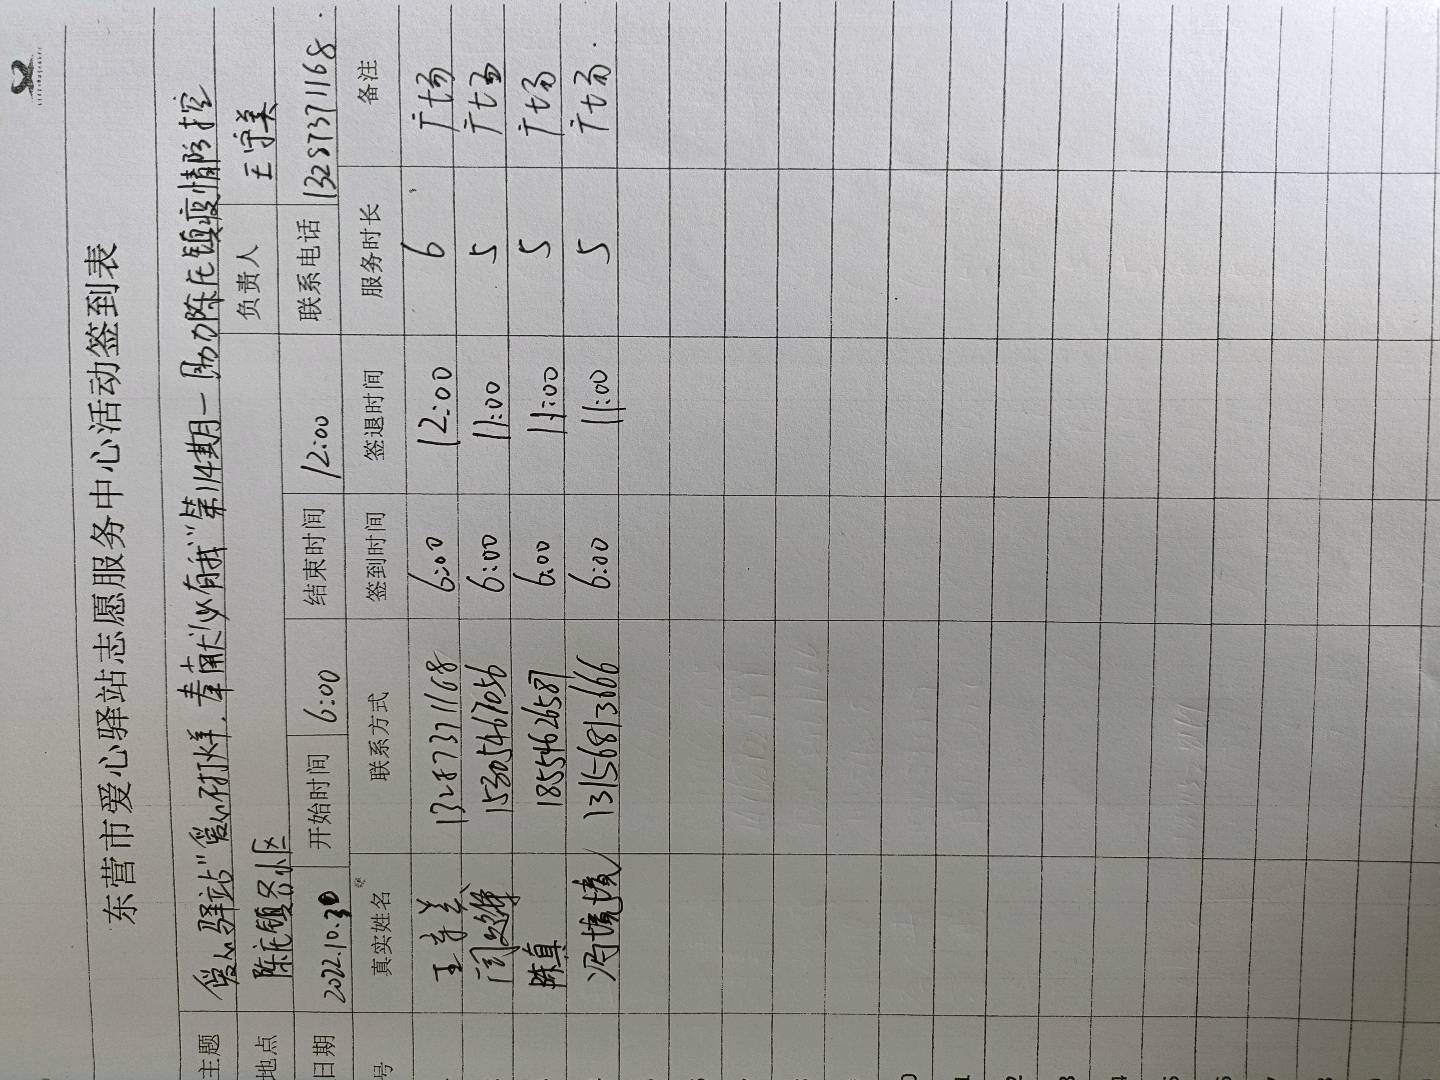 东营市爱心驿站志愿服务中心活动签到表
主题 爱心驿站"爱心不打烊,奉献必有我"第114期—助力陈庄镇疫情防控
地点 陈庄镇各小区 负责人 王守美
日期 2022.10.30 开始时间 6:00 结束时间 12:00 联系电话 13287371168
号 真实姓名 联系方式 签到时间 签退时间 服务时长 备注
王守美 13287371168 6:00 12:00 6 广场
闫 15305467056 6:00 11:00 5 广场
陈真 18554626587 6:00 11:00 5 广场
冯境境 13156813666 6:00 11:00 5 广场